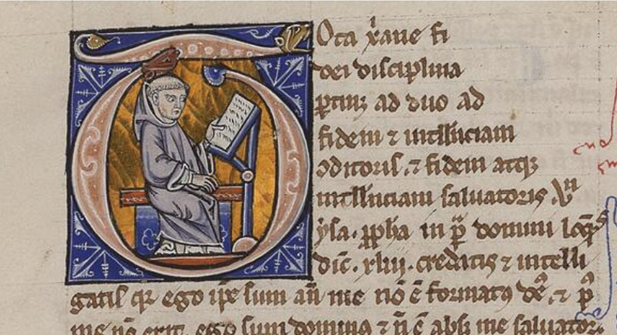 Tota xp̄iane fi
dei disciplina
ꝑtinꝫ ad duo ad
fidem ⁊ intell'nciam
ꝯditoris. ⁊ fidem atqꝫ
intell'nciam saluatoris. Vn̄
ysa. ꝓph̄a in ꝑ domini
dic̄. xliii. creditis ⁊ intelli
gatis qꝛ ego ip̄e sum an̄ me nō ē formatus ⁊
me nō erit. ego sum dominus ⁊ n̄ ē absqꝫ me saluator.